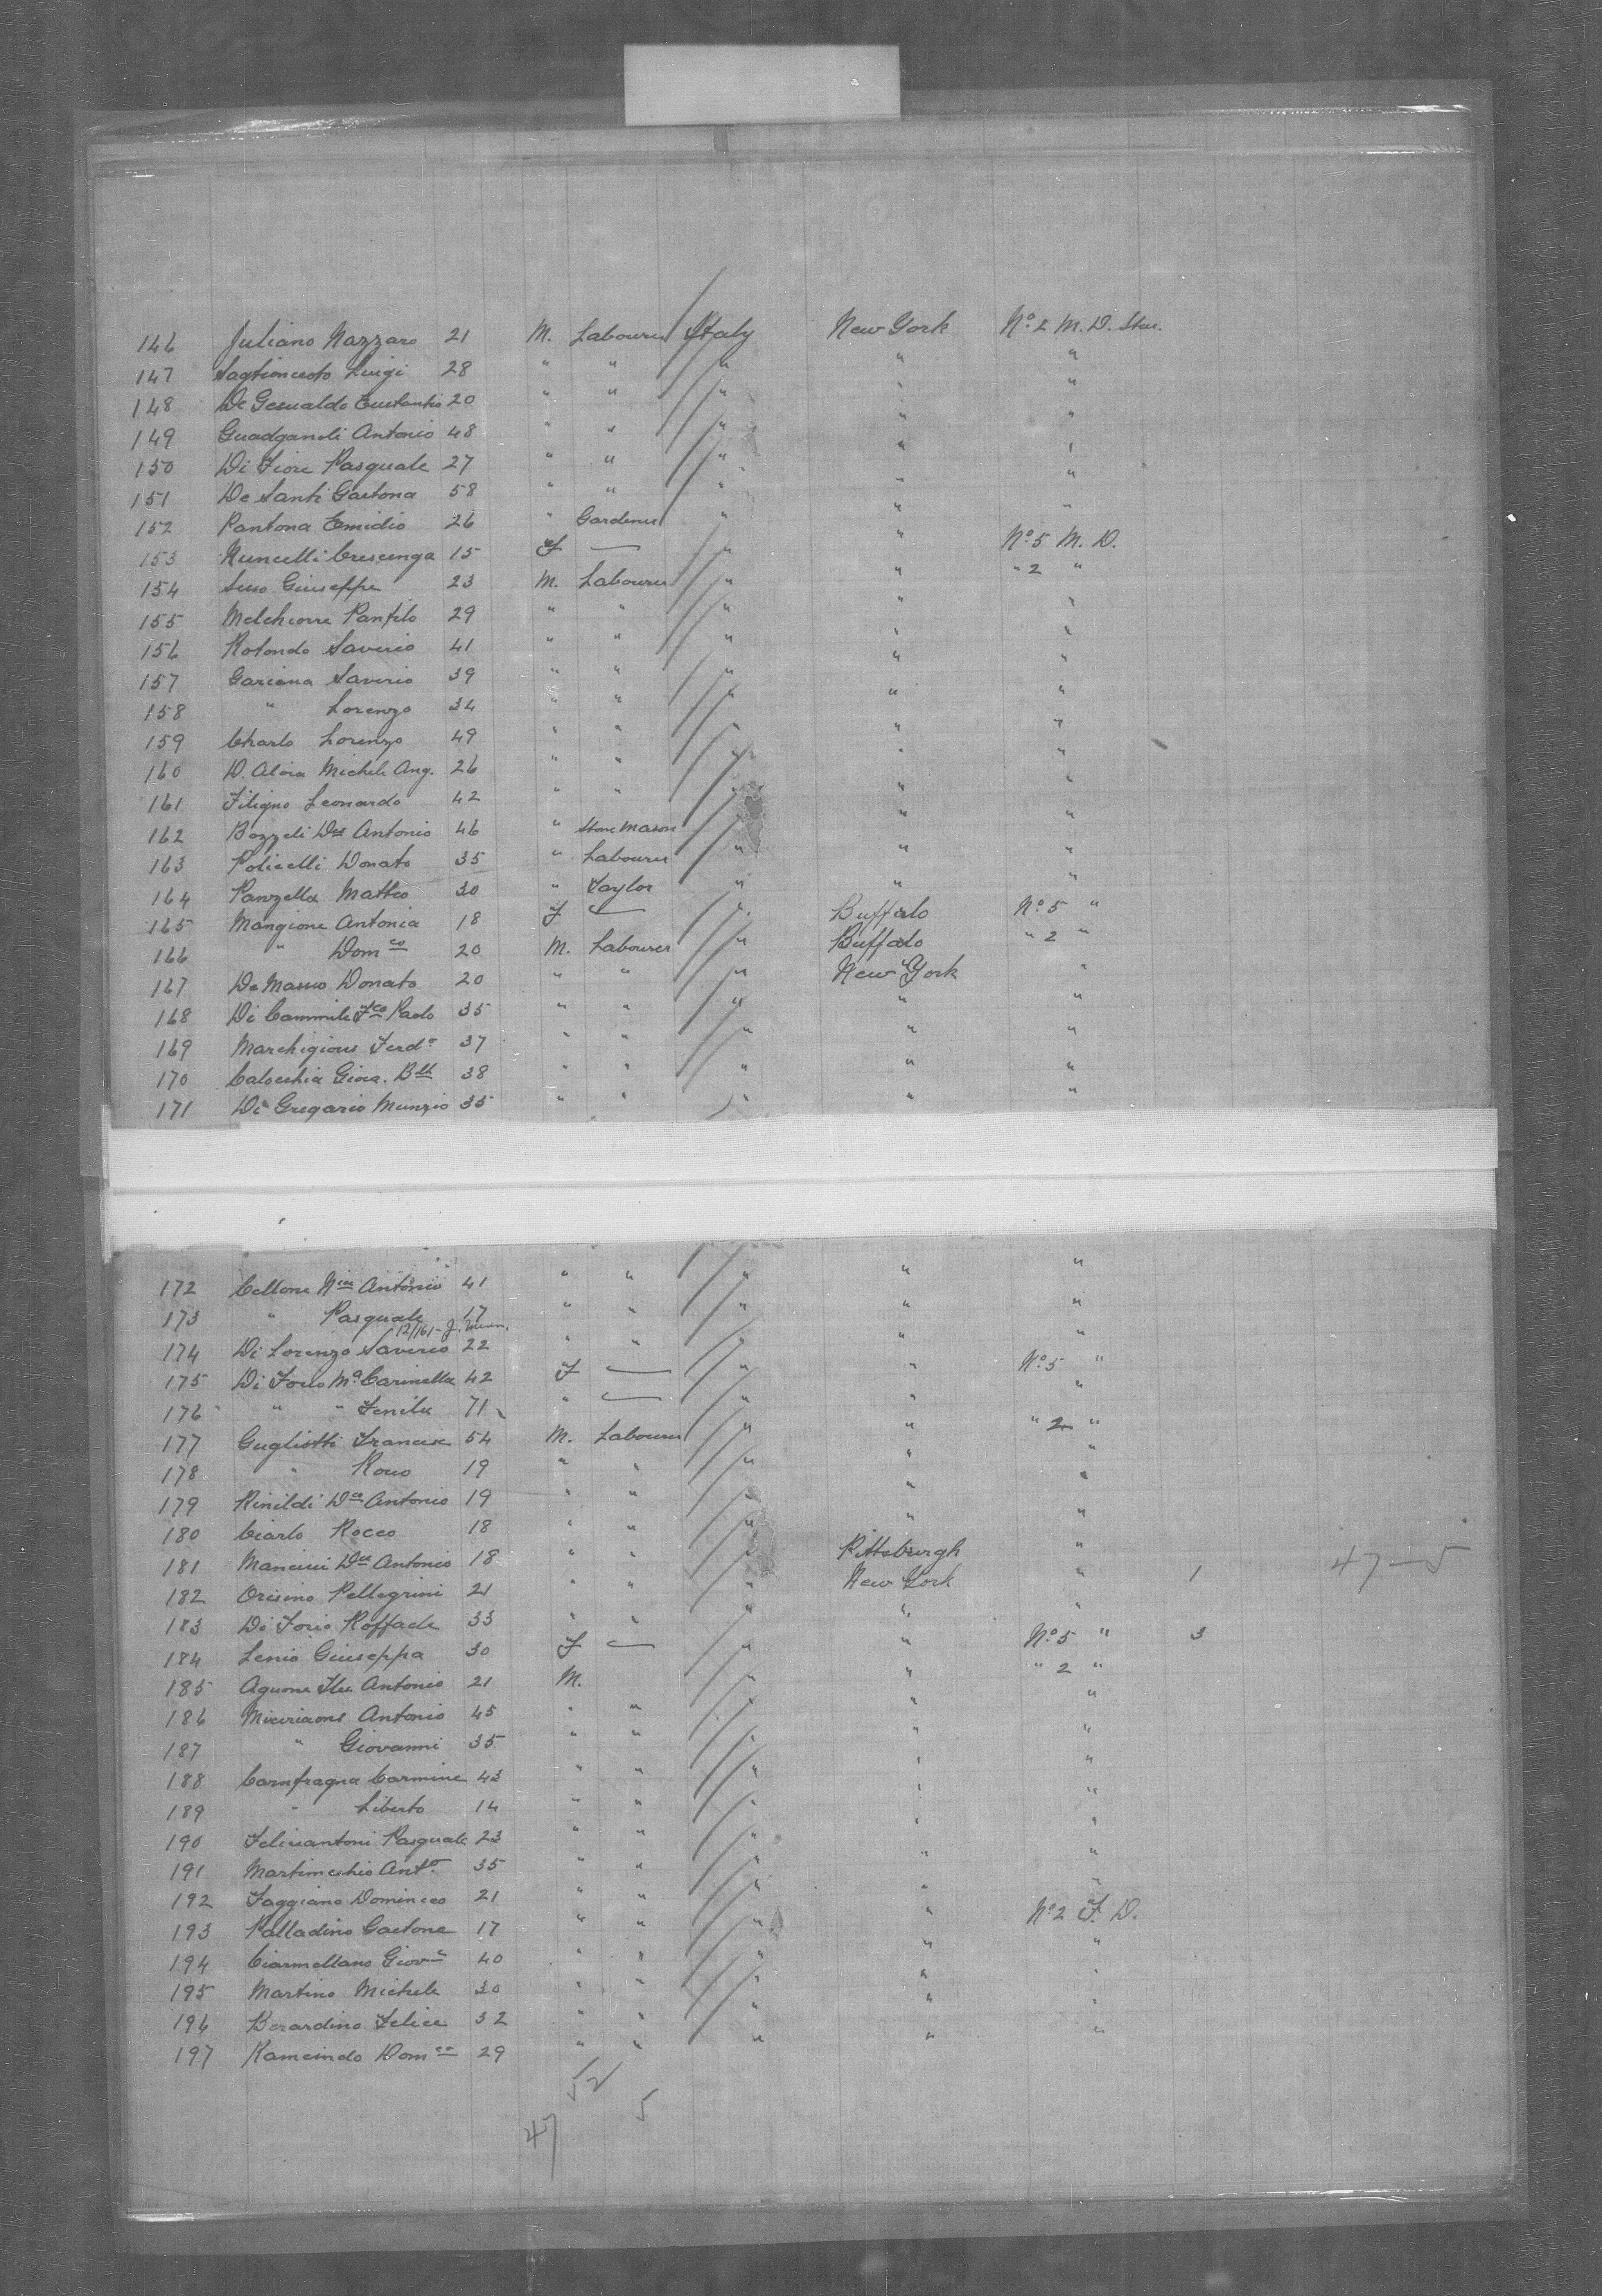 146 Juliano Nazzaro 21 M. Labourer Italy New York No. 2 M. D. Stee.
147 Luigi 28 " " " " "
148 De Gesualdo 20 " " " " "
149 Antonio 48 " " " " "
150 Di Fiore Pasquale 27 " " " " "
151 De Santi Gaetona 58 " " " " "
152 Pantona Emidio 26 " Gardener " " "
153 Nuncelli Crescenza 15 F — " " No. 5 M. D.
154 Giuseppe 23 M. Labourer " " " 2 "
155 Melchiorre Panfilo 29 " " " " "
156 Rotondo Saverio 41 " " " " "
157 Gariana Saverio 39 " " " " "
158 " Lorenzo 34 " " " " "
159 Charlo Lorenzo 49 " " " " "
160 D. Aloia Michele Ang. 26 " " " " "
161 Filigno Leonardo 42 " " " " "
162 Bozzeli Antonio 46 " Stone Mason " " "
163 Policelli Donato 35 " Labourer " " "
164 Panzella Matteo 30 " Taylor " " "
165 Mangione Antonia 18 F — " Buffalo No. 5 "
166 " Domco 20 M. Labourer " Buffalo " 2 "
167 De Masso Donato 20 " " " New York "
168 Di Cammile Fco Paolo 35 " " " " "
169 Marchigious Ferdo 37 " " " " "
170 Calocchia Giova. Btt 38 " " " " "
171 Di Gregario Munzio 35 " " " " "
172 Cellone Antonio 41 " " " " "
173 " Pasquale 17 " " " " "
12/161-
174 Di Lorenzo Saverio 22 " " " " "
175 Di Iorio Ma Carinella 42 F — " " No. 5 "
176 " " 71 " — " " "
177 Gugliotti 54 M. Labourer " " " 2 "
178 " Rocco 19 " " " " "
179 Rinildi Antonio 19 " " " " "
180 Ciarlo Rocco 18 " " " " "
181 Mancini Antonio 18 " " " Pittsburgh "
182 Orisino Pellegrini 21 " " " New York " 1 47-5
183 Di Iorio Raffaele 33 " " " " "
184 Lenio Giuseppa 30 F — " " No. 5 " 3
185 Antonio 21 M. " " " 2 "
186 Antonio 45 " " " " "
187 " Giovanni 35 " " " " "
188 Carnfragna Carmine 43 " " " " "
189 " Liberto 14 " " " " "
190 Feliciantoni Pasquale 23 " " " " "
191 Martinicchio Anto. 35 " " " " "
192 Faggiano Dominico 21 " " " " "
193 Palladino Gaetone 17 " " " " No. 2 F. D.
194 Ciarmellano 40 " " " " "
195 Martino Michele 30 " " " " "
196 Berardino Felice 32 " " " " "
197 Domco 29 " " " " "
52
5
47